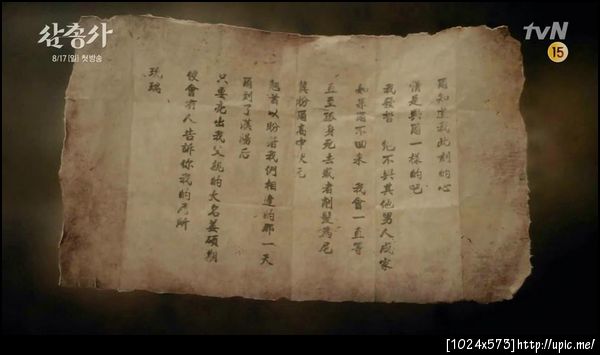 삼총사
8/17[일] 첫방송
tvN
15
爾知道我此刻的心
情是與爾一樣的吧
我發誓 絕不與其他男人成家
如果爾不回來 我會一直等
直至孤身死去或者削髮爲尼
冀盼爾高中狀元
翹首以盼着我們相逢的那一天
爾到了漢陽后
只要亮出我父親的大名姜碩期
便會有人告訴你我的居所
玧瑞
[1024x573]http://upic.me/